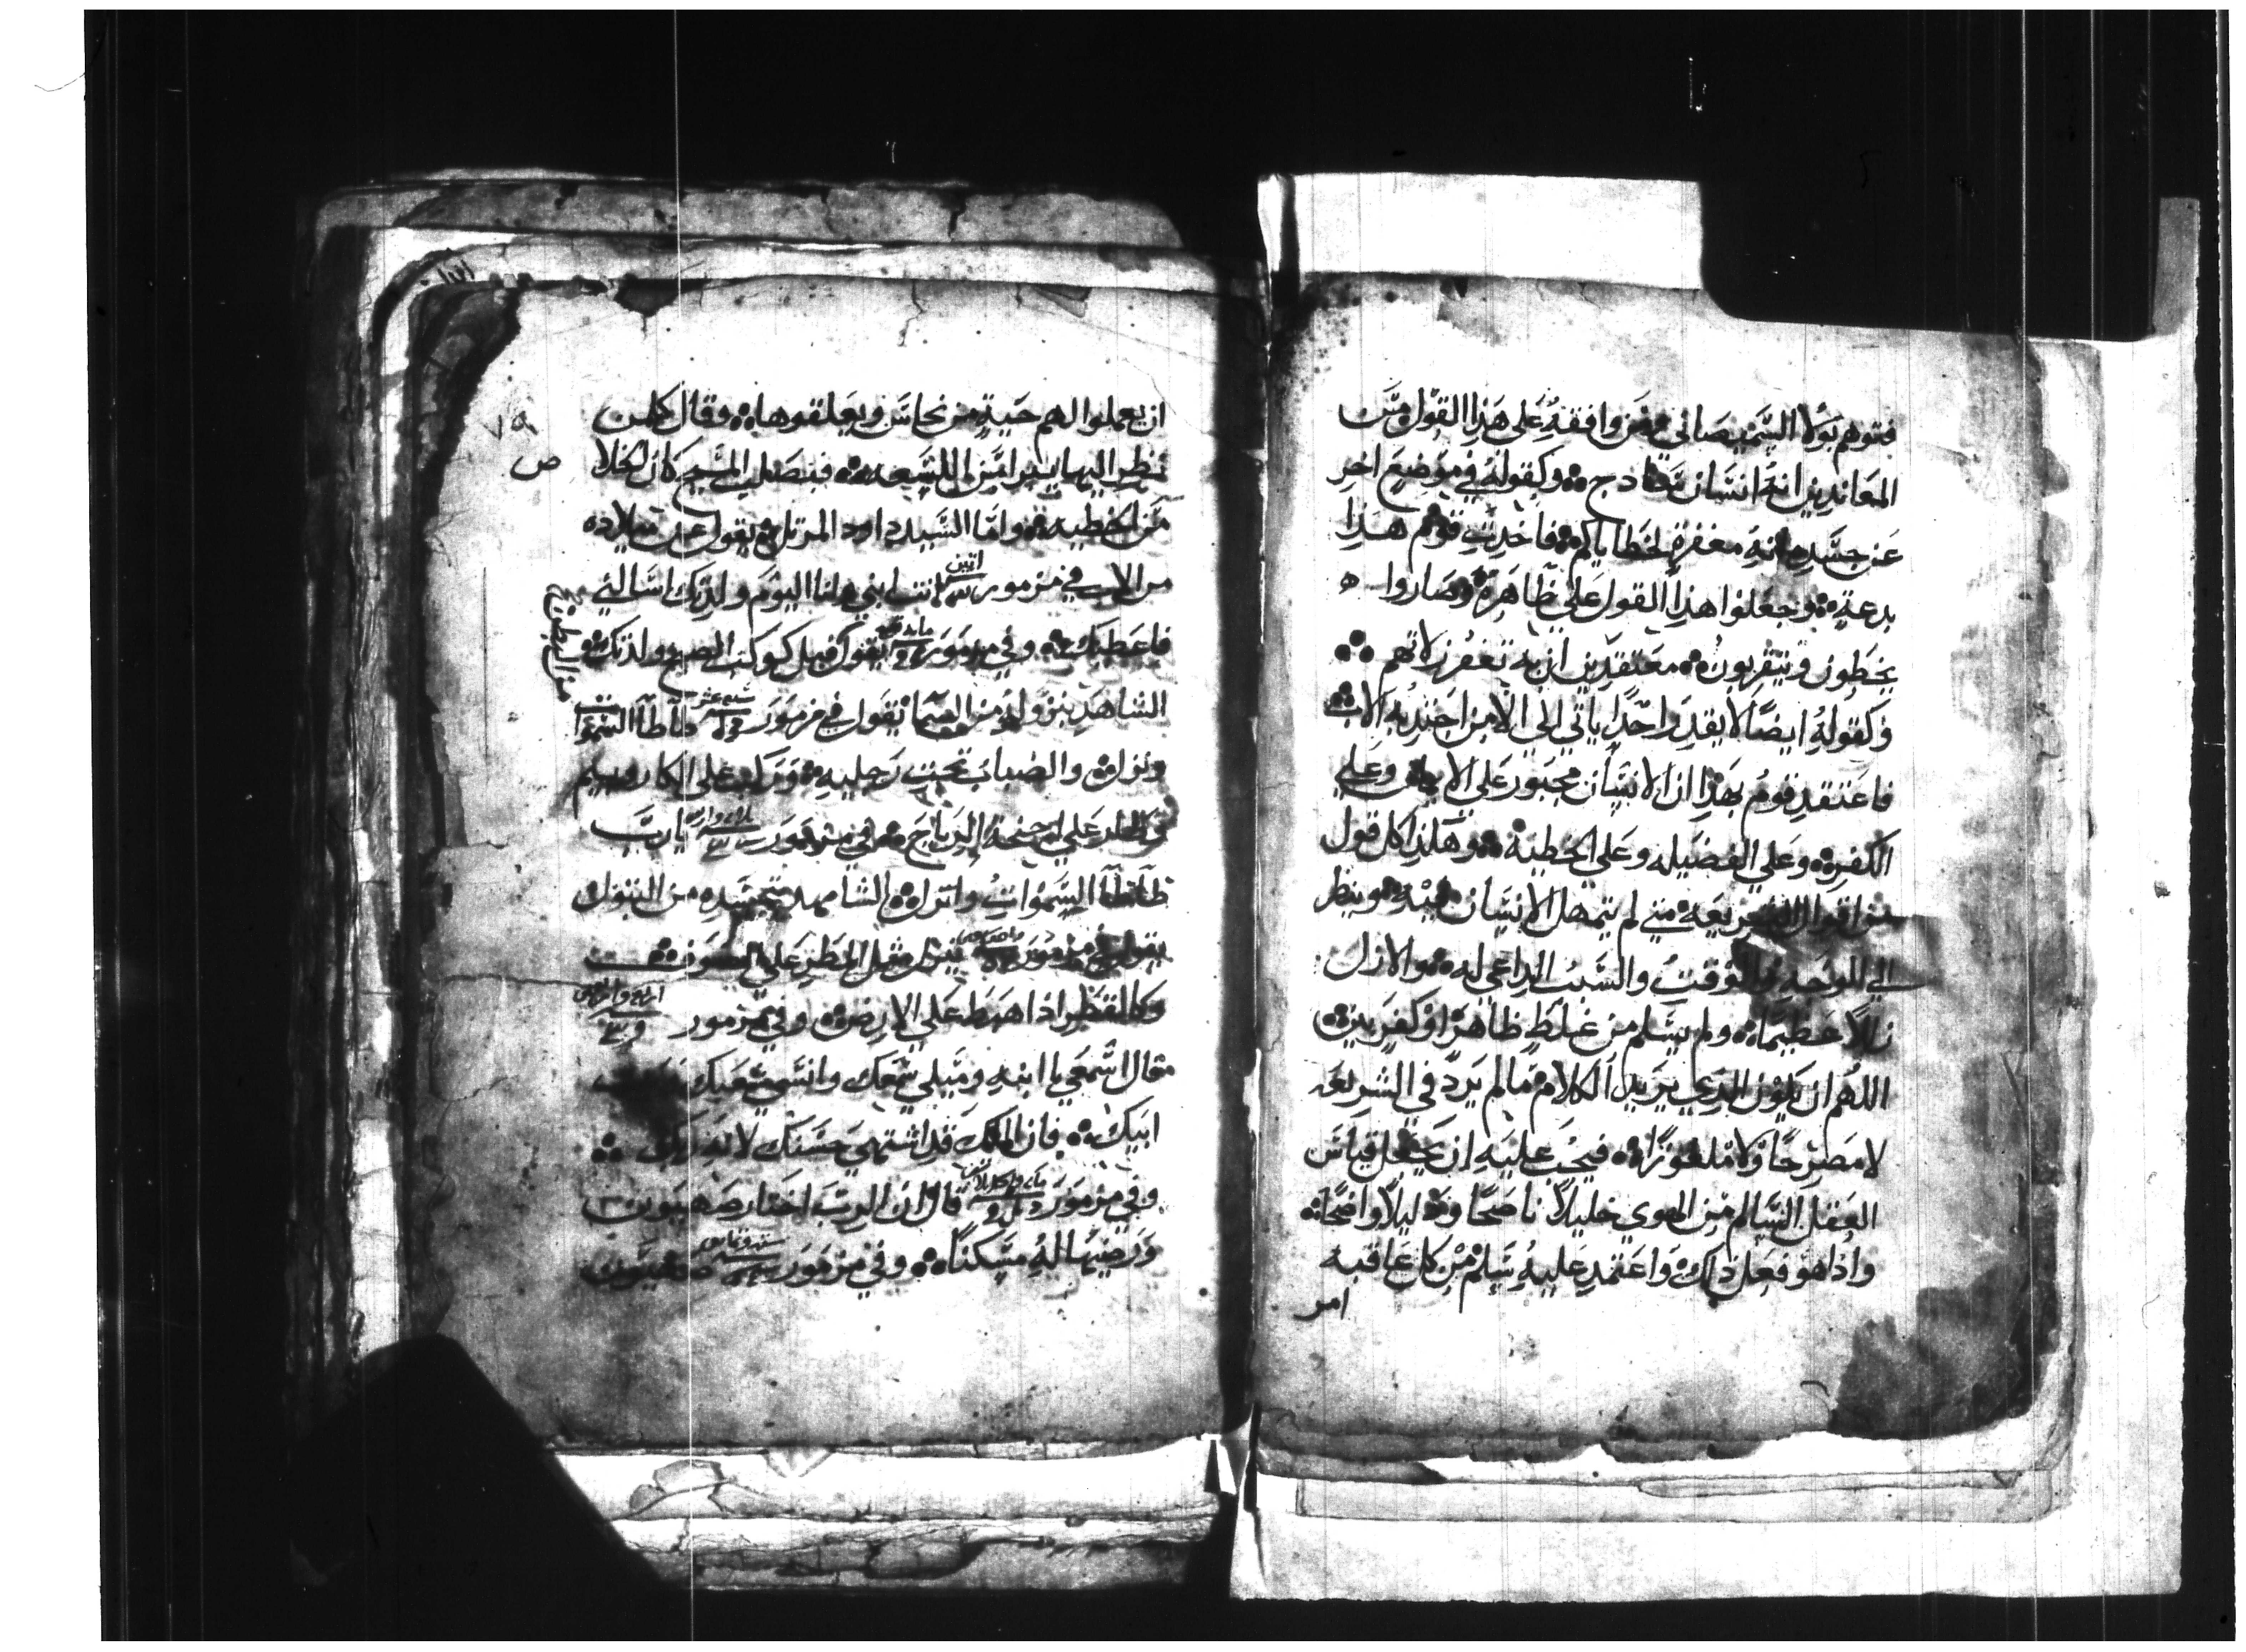 فتوهم بولا السميصاني ومن وافقه على هذا القول ومن
المعاندين انه انسان ساذج وكقوله في موضع اخر
عن جسده انه مغفرة لخطاياكم فاخدت قوم هذا
بدعة وجعلوا هذا القول على ظاهرة وصاروا
يخطون ويتقربون معتقدين ان به تغفر زلاتهم
وكقوله ايضا لا يقدر احدا ياتي الي الا من اجتدبه الاب
فاعتقد قوم بهذا ان الانسان مجبور على الايمان وعلي
الكفر وعلي الفضيله وعلي الخطية وهكذا كل قول
من اقوال الشريعه متي لم يتمهل الانسان فيه وينظر
الي الوجه والوقت والسبب الداعي له والا زل
زللا عظيما ولم يسلم من غلط ظاهر او كفر بين
اللهم ان يكون الذي يريد الكلام مما لم يرد في الشريعه
لا مصرحا ولا ملغوزا فيجب عليه ان يجعل قياس
العقل السالم من الهوي خليلا ناصحا ودليلا واضحا
واذا هو فعل ذلك واعتمد عليه سلم من كل عاقبه
امر
٧٩
ان يعملوا لهم حية من نحاس ويعلقوها وقال كلمن
نظر اليها يبرا من اللسعه فبصلب المسيح كان الخلا
ص
من الخطيه واما السيد داود المرتل يقول عن ميلاده
من الاب في مزمور اتنين انت ابني وانا اليوم ولدتك اسالني
فاعطيك وفي مزمور مايه يقول قبل كوكب الصبح ولدتك و
الشاهد بنزوله من السما يقول في مزمور سبع عشر طاطا السموات
ونزل والضباب تحت رجليه وركب على الكاروبيم
وطار على اجنحة الرياح وفي مزمور يارب
طاطا السموات وانزل الشاهد بتجسده من البتول
يقول في مزمور ينزل مثل المطر على الصوف
وكالقطر اذا هبط على الارض وفي مزمور اربع واربعين
فقال اسمعي يا ابنه وميلي سمعك وانسي شعبك وبيت
ابيك فان الملك قد اشتهي حسنك لانه ربك
وفي مزمور قال ان الرب اختار صهيون
ورضيها له مسكنا وفي مزمور صهيون